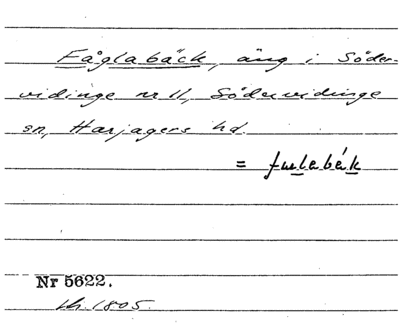 Fåglabäck, äng i Söder-
vidinge nr 11, Södervidinge
sn, Harjagers hd.
= fuulabäk
Nr 5622.
1805.